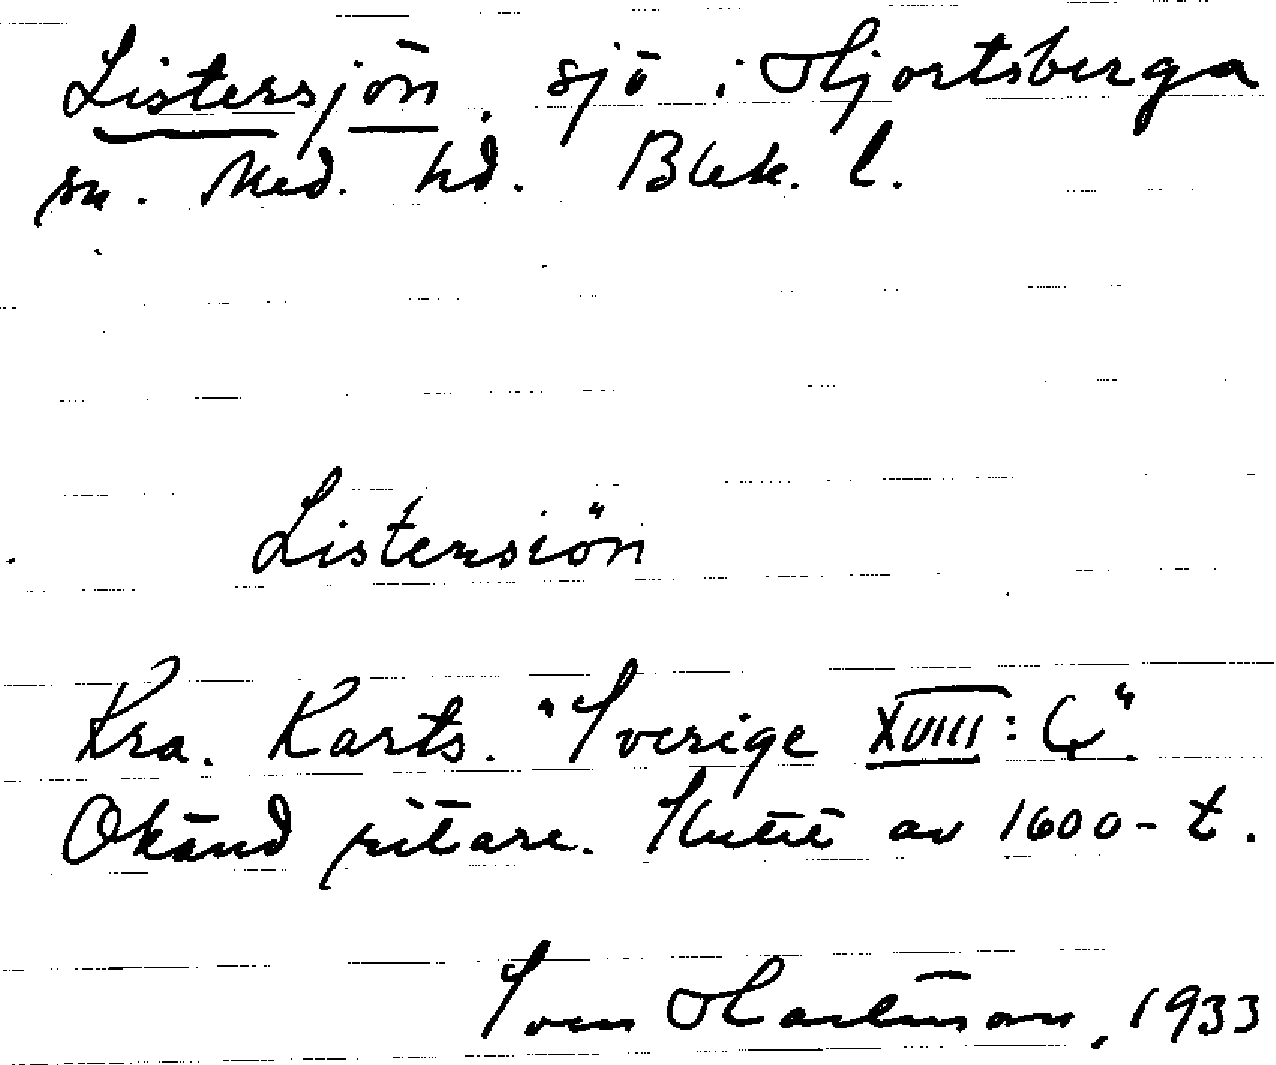 Listersjön. sjö i Hjortsberga
sn. Med. hd. Blek. l.
Listersiön
Kra. Karts. "Sverige XVIII: G"
Okänd ritare. Slutet av 1600-t.
Sven Hartman, 1933